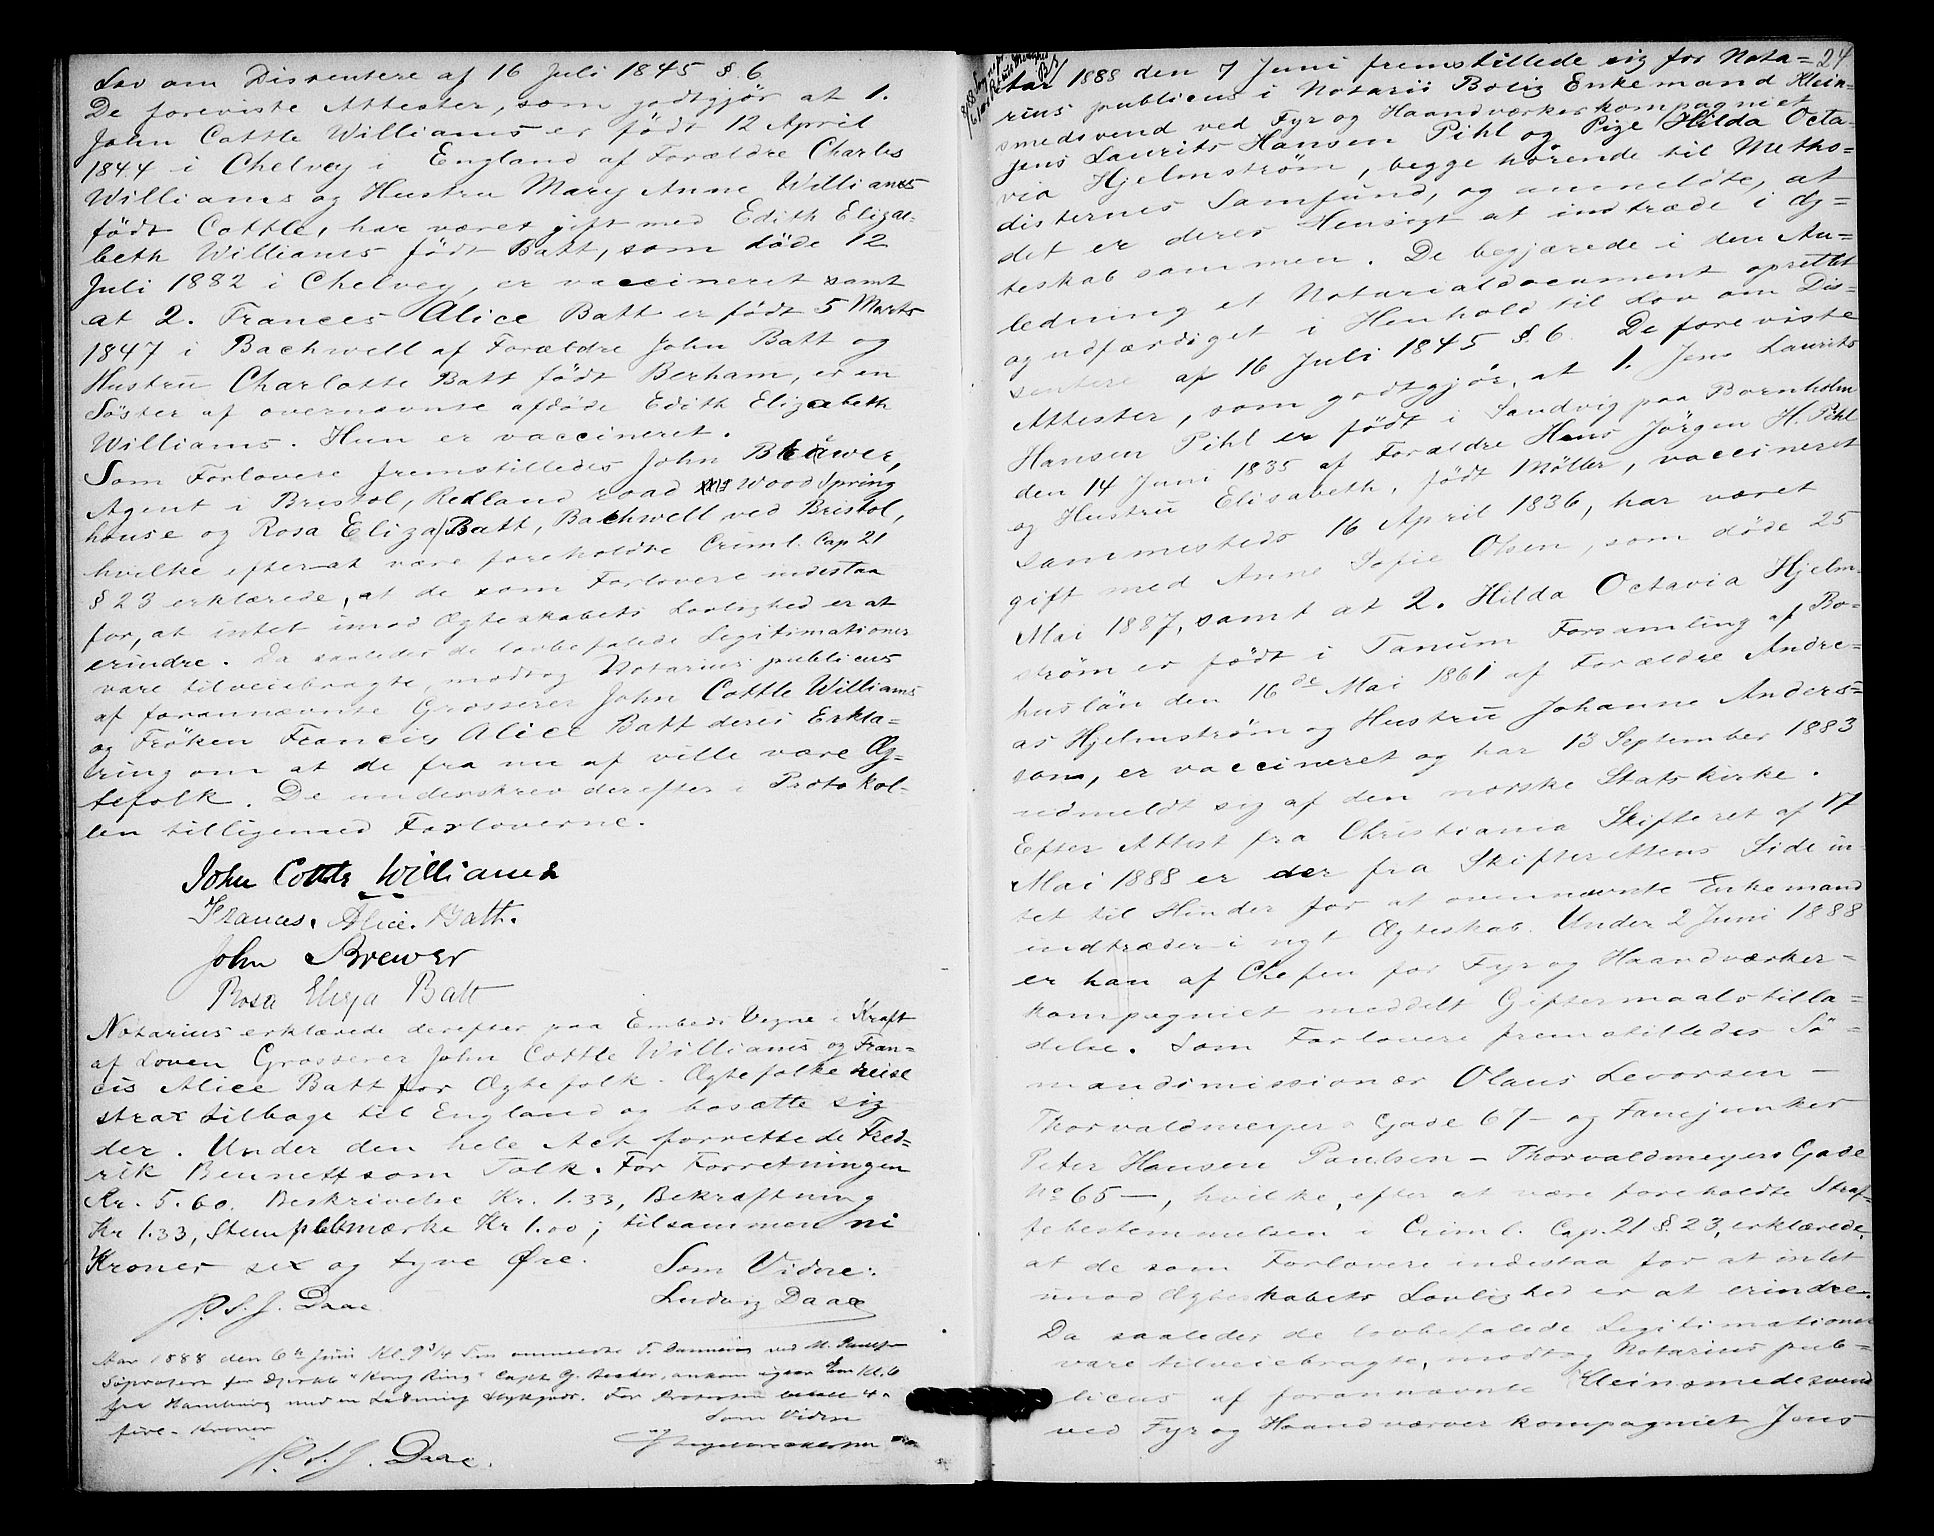 Lov om Dissentere af 16 Juli 1845 § 6
De foreviste Attester, som godtgjør at 1.
John Cottle Williams er født 12 April
1844 i Chelvey i England af Forældre Charles
Williams og Hustru Mary Anne Williams
født Cottle, har været gift med Edith Eliza-
beth Williams født Batt, som døde 12
Juli 1882 i Chelvey, er vaccineret samt
at 2. Frances Alice Batt er født 5 Marts
1847 i Bachwell af Forældre John Batt og
Hustru Charlotte Batt født Berham, er en
Søster af overnævnte afdøde Edith Elizabeth
Williams. Hun er vaccineret.
Som Forlovere fremstilledes John Brewer,
Agent i Bristol, Redland road Wood Spring
house og Rosa Eliza Batt, Bachwell ved Bristol,
hvilke efter at være foreholdte Criml. Cap 21
§ 23 erklærede, at de som Forlovere indestaa
for, at intet imod Ægteskabets Lovlighed er at
erindre. Da saaledes de lovbefalede Legitimationer
vare tilveiebragte, modtog Notarius publicus
af forannævnte Grosserer John Cottle Williams
og Frøken Francis Alice Batt deres Erklæ-
ring om at de fra nu af ville være Æg-
tefolk. De underskrev derefter i Protokol-
len tilligemed Forloverne.
John Cottle Williams
Frances. Alice. Batt.
John Brewer
Rosa Eliza Batt
Notarius erklærede derefter paa Embeds Vegne i Kraft
af Loven Grosserer John Cottle Williams og Fran-
cis Alice Batt for Ægtefolk. Ægtefolke reise
strax tilbage til England og bosatte sig
der. Under den hele Act forrettede Fred-
rik Bennett som Tolk. For Forretningen
Kr. 5.60. Beskrivelse Kr. 1.33, Bekræftning
Kr 1.33, Stempletmærke Kr 1.00; tilsammen ni
Kroner sex og tyve Øre. Som Vidne:
P.S.J. Daae. Ludvig Daae
Aar 1888 den 6te Juni Kl. 9 3/4 Fm anmeldte ved
Søprotest for Dskib "Kong Ring" Capt G.
fra Hamburg med en Ladning Stykgods. For Protesten betalt 4 -
fire - Kroner Som Vidne
P.S.J. Daae.
24
Aar 1888 den 7 Juni fremstillede sig for Nota-
rius publicus i Notarii Bolig Enkemand Klein-
smedsvend ved Fyr og Haandværkerkompagniet
Jens Laurits Hansen Pihl og Pige Hilda Octa-
via Hjelmstrøm, begge hørende til Metho-
disternes Samfund, og anmeldte, at
det er deres Hensigt at indtræde i Æg-
teskab sammen. De begjærede i den An-
ledning et Notarialdocument oprettet
og udfærdiget i Henhold til Lov om Dis-
sentere af 16 Juli 1845 § 6. De foreviste
Attester, som godtgjør, at 1. Jens Laurits
Hansen Pihl er født i Sandvig paa Bornholm
den 14 Juni 1835 af Forældre Hans Jørgen H. Pihl
og Hustru Elisabeth, født Møller, vaccineret
sammesteds 16 April 1836, har været
gift med Anne Sofie Olsen, som døde 25
Mai 1887, samt at 2. Hilda Octavia Hjelm-
strøm er født i Tanum Forsamling af Bo-
huslän den 16de Mai 1861 af Forældre Andre-
as Hjelmstrøm og Hustru Johanne Anders-
son, er vaccineret og har 13 September 1883
udmeldt sig af den norske Statskirke.
Efter Attest fra Christiania Skifteret af 17
Mai 1888 er der fra Skifterettens Side in-
tet til Hinder for at overnævnte Enkemand
indtræder i nyt Ægteskab. Under 2 Juni 1888
er han af Chefen for Fyr og Haandværker-
kompagniet meddelt Giftermaalstilla-
delse. Som Forlovere fremstilledes Sø-
mandsmissionær Olaus Levorsen -
Thorvaldmeyers Gade 61 - og Fanejunker
Peter Hansen Paulsen - Thorvaldmeyers Gade
No 65 -, hvilke, efter at være foreholdte Straf-
febestemmelsen i Criml. Cap. 21 §. 23, erklærede,
at de som Forlovere indestaa for at intet
imod Ægteskabets Lovlighed er at erindre.
Da saaledes de lovbefalede Legitimationer
vare tilveiebragte, modtog Notarius pub-
licus af forannævnte Kleinsmedsvend
ved Fyr og Haandværkerkompagniet Jens